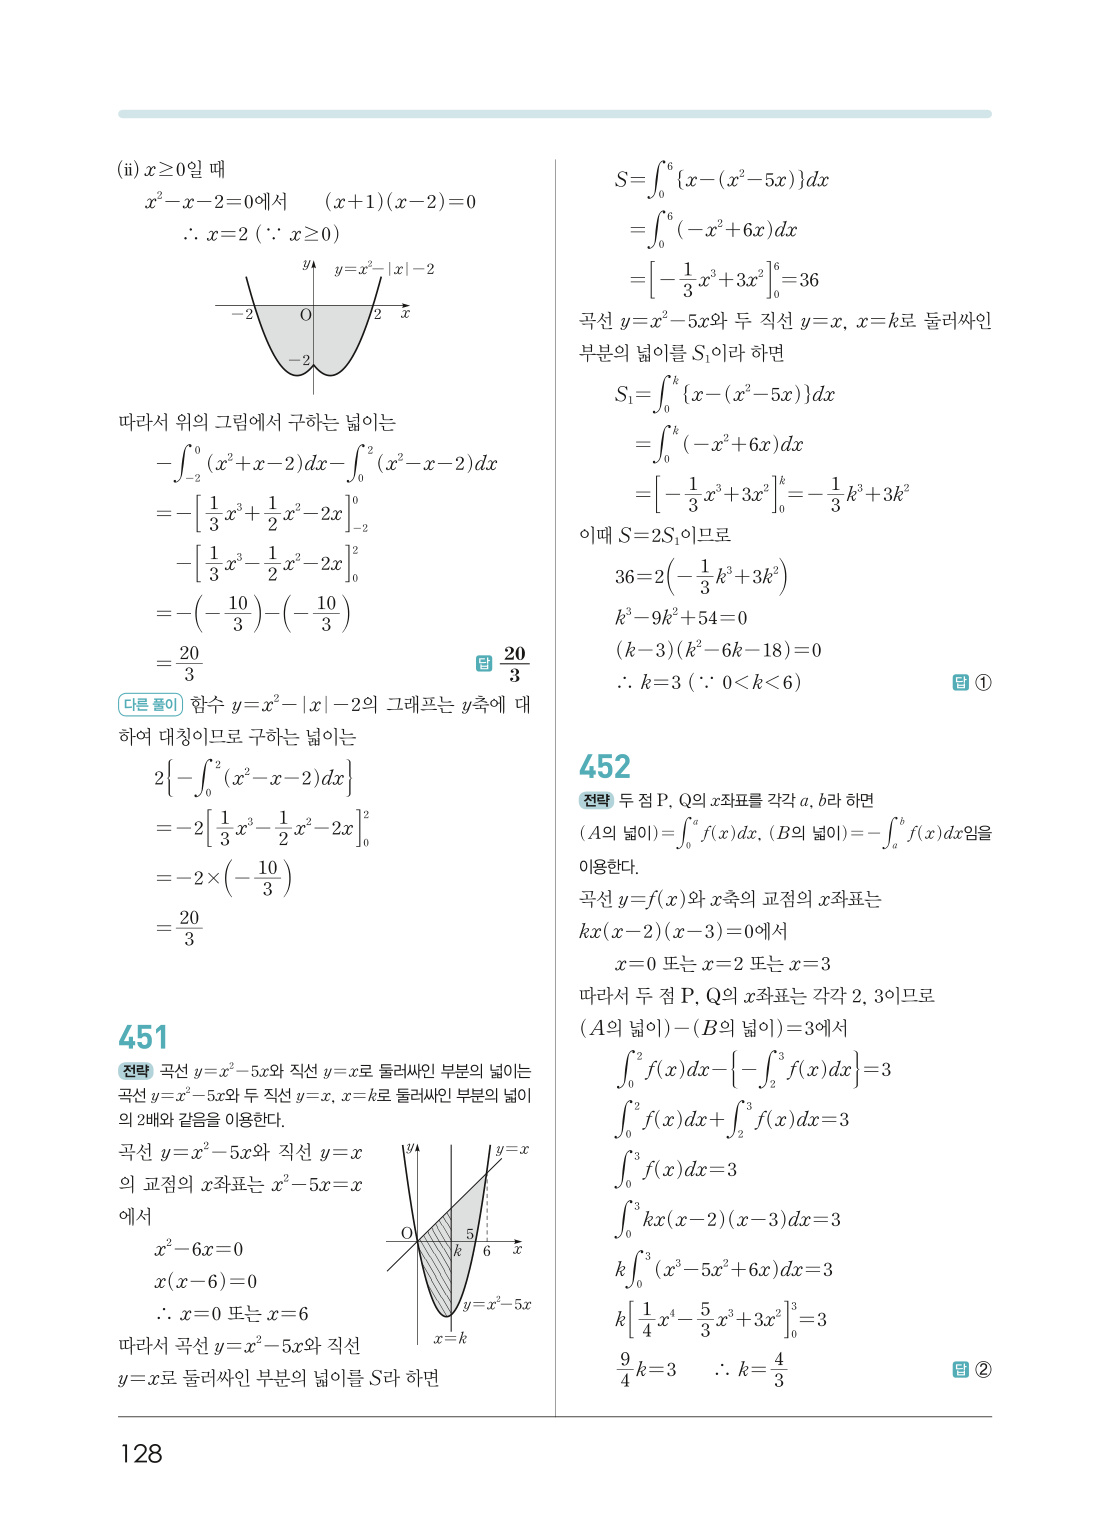 (ⅱ) x≥0일 때
x²-x-2=0에서 (x+1)(x-2)=0
∴ x=2 (∵ x≥0)
y y=x²-|x|-2
-2 O 2 x
-2
따라서 위의 그림에서 구하는 넓이는
-∫_{-2}^{0}(x²+x-2)dx-∫_{0}^{2}(x²-x-2)dx
=-[1/3x³+1/2x²-2x]_{-2}^{0}
-[1/3x³-1/2x²-2x]_{0}^{2}
=-(-10/3)-(-10/3)
=20/3 답 20/3
다른 풀이 함수 y=x²-|x|-2의 그래프는 y축에 대
하여 대칭이므로 구하는 넓이는
2{-∫_{0}^{2}(x²-x-2)dx}
=-2[1/3x³-1/2x²-2x]_{0}^{2}
=-2×(-10/3)
=20/3
451
전략 곡선 y=x²-5x와 직선 y=x로 둘러싸인 부분의 넓이는
곡선 y=x²-5x와 두 직선 y=x, x=k로 둘러싸인 부분의 넓이
의 2배와 같음을 이용한다.
곡선 y=x²-5x와 직선 y=x
의 교점의 x좌표는 x²-5x=x
에서
x²-6x=0
x(x-6)=0
∴ x=0 또는 x=6
따라서 곡선 y=x²-5x와 직선
y=x로 둘러싸인 부분의 넓이를 S라 하면
y y=x
O 5
k 6 x
y=x²-5x
x=k
S=∫_{0}^{6}{x-(x²-5x)}dx
=∫_{0}^{6}(-x²+6x)dx
=[-1/3x³+3x²]_{0}^{6}=36
곡선 y=x²-5x와 두 직선 y=x, x=k로 둘러싸인
부분의 넓이를 S₁이라 하면
S₁=∫_{0}^{k}{x-(x²-5x)}dx
=∫_{0}^{k}(-x²+6x)dx
=[-1/3x³+3x²]_{0}^{k}=-1/3k³+3k²
이때 S=2S₁이므로
36=2(-1/3k³+3k²)
k³-9k²+54=0
(k-3)(k²-6k-18)=0
∴ k=3 (∵ 0<k<6) 답 ①
452
전략 두 점 P, Q의 x좌표를 각각 a, b라 하면
(A의 넓이)=∫_{0}^{a}f(x)dx, (B의 넓이)=-∫_{a}^{b}f(x)dx임을
이용한다.
곡선 y=f(x)와 x축의 교점의 x좌표는
kx(x-2)(x-3)=0에서
x=0 또는 x=2 또는 x=3
따라서 두 점 P, Q의 x좌표는 각각 2, 3이므로
(A의 넓이)-(B의 넓이)=3에서
∫_{0}^{2}f(x)dx-{-∫_{2}^{3}f(x)dx}=3
∫_{0}^{2}f(x)dx+∫_{2}^{3}f(x)dx=3
∫_{0}^{3}f(x)dx=3
∫_{0}^{3}kx(x-2)(x-3)dx=3
k∫_{0}^{3}(x³-5x²+6x)dx=3
k[1/4x⁴-5/3x³+3x²]_{0}^{3}=3
9/4k=3 ∴ k=4/3 답 ②
128